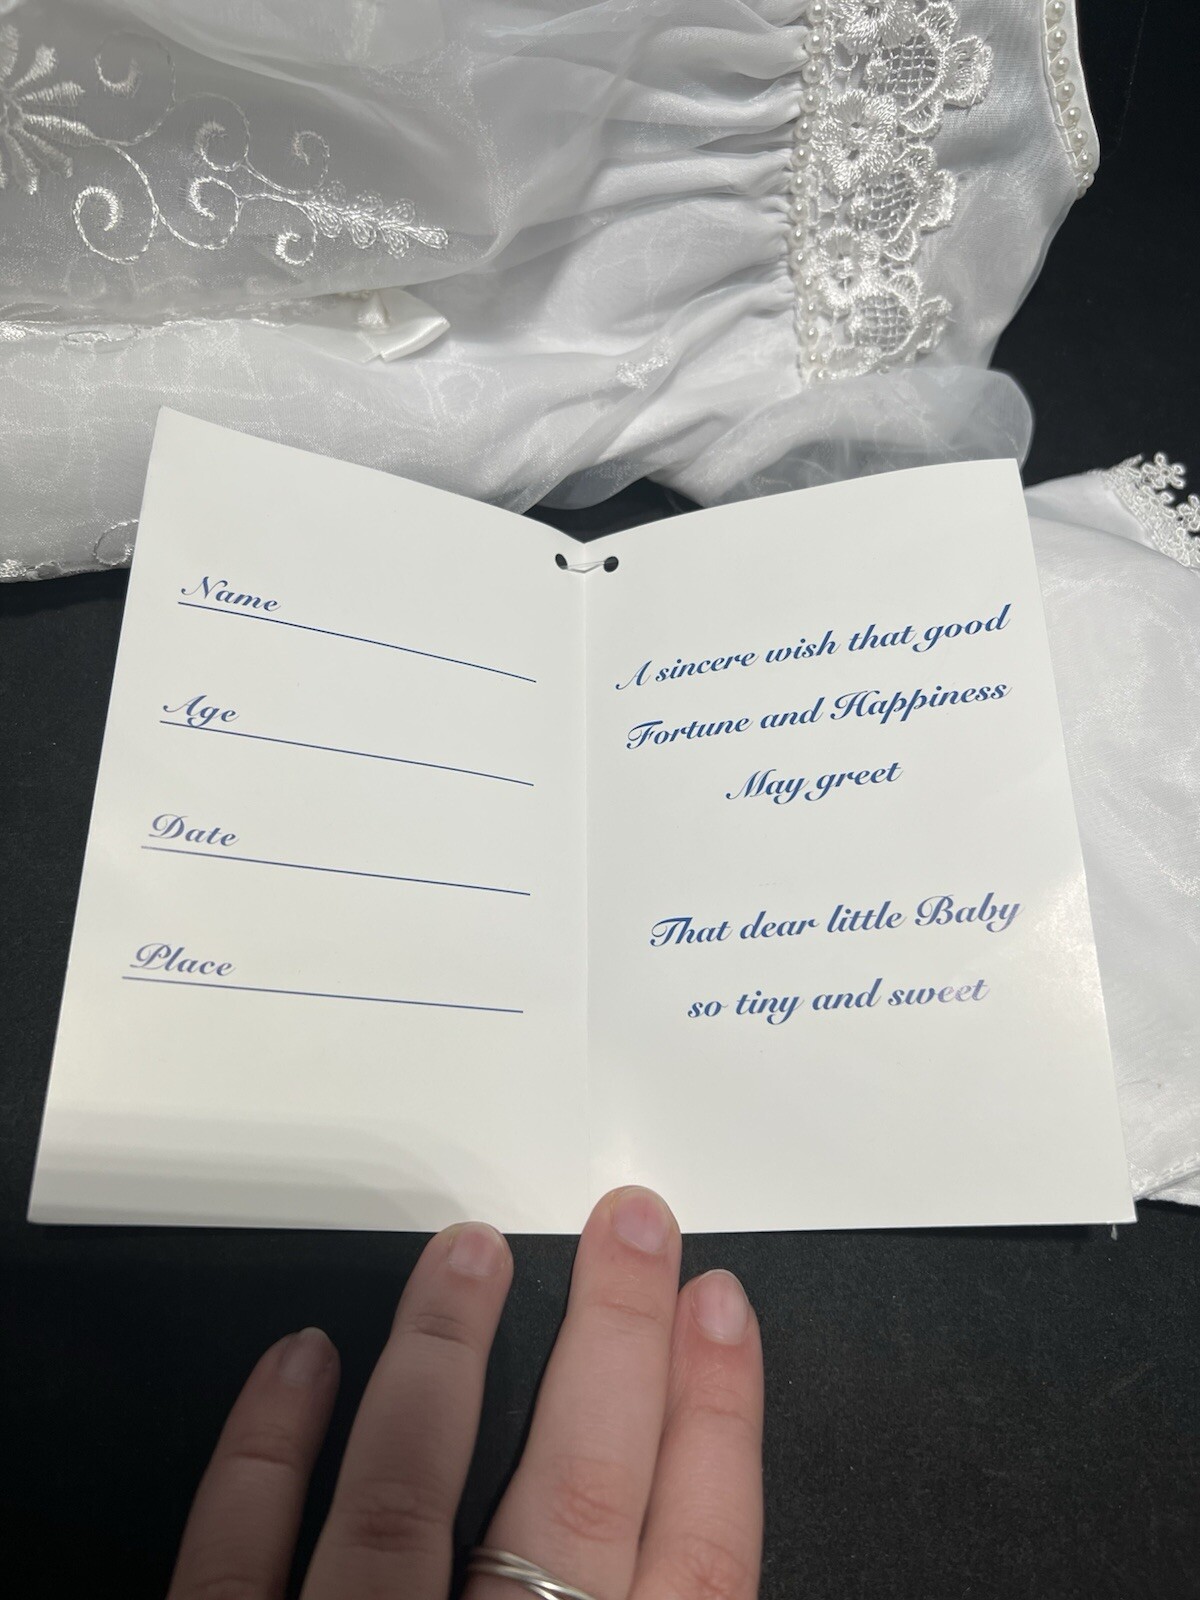 Name
Age
Date
Place
A sincere wish that good
Fortune and Happiness
May greet
That dear little Baby
so tiny and sweet